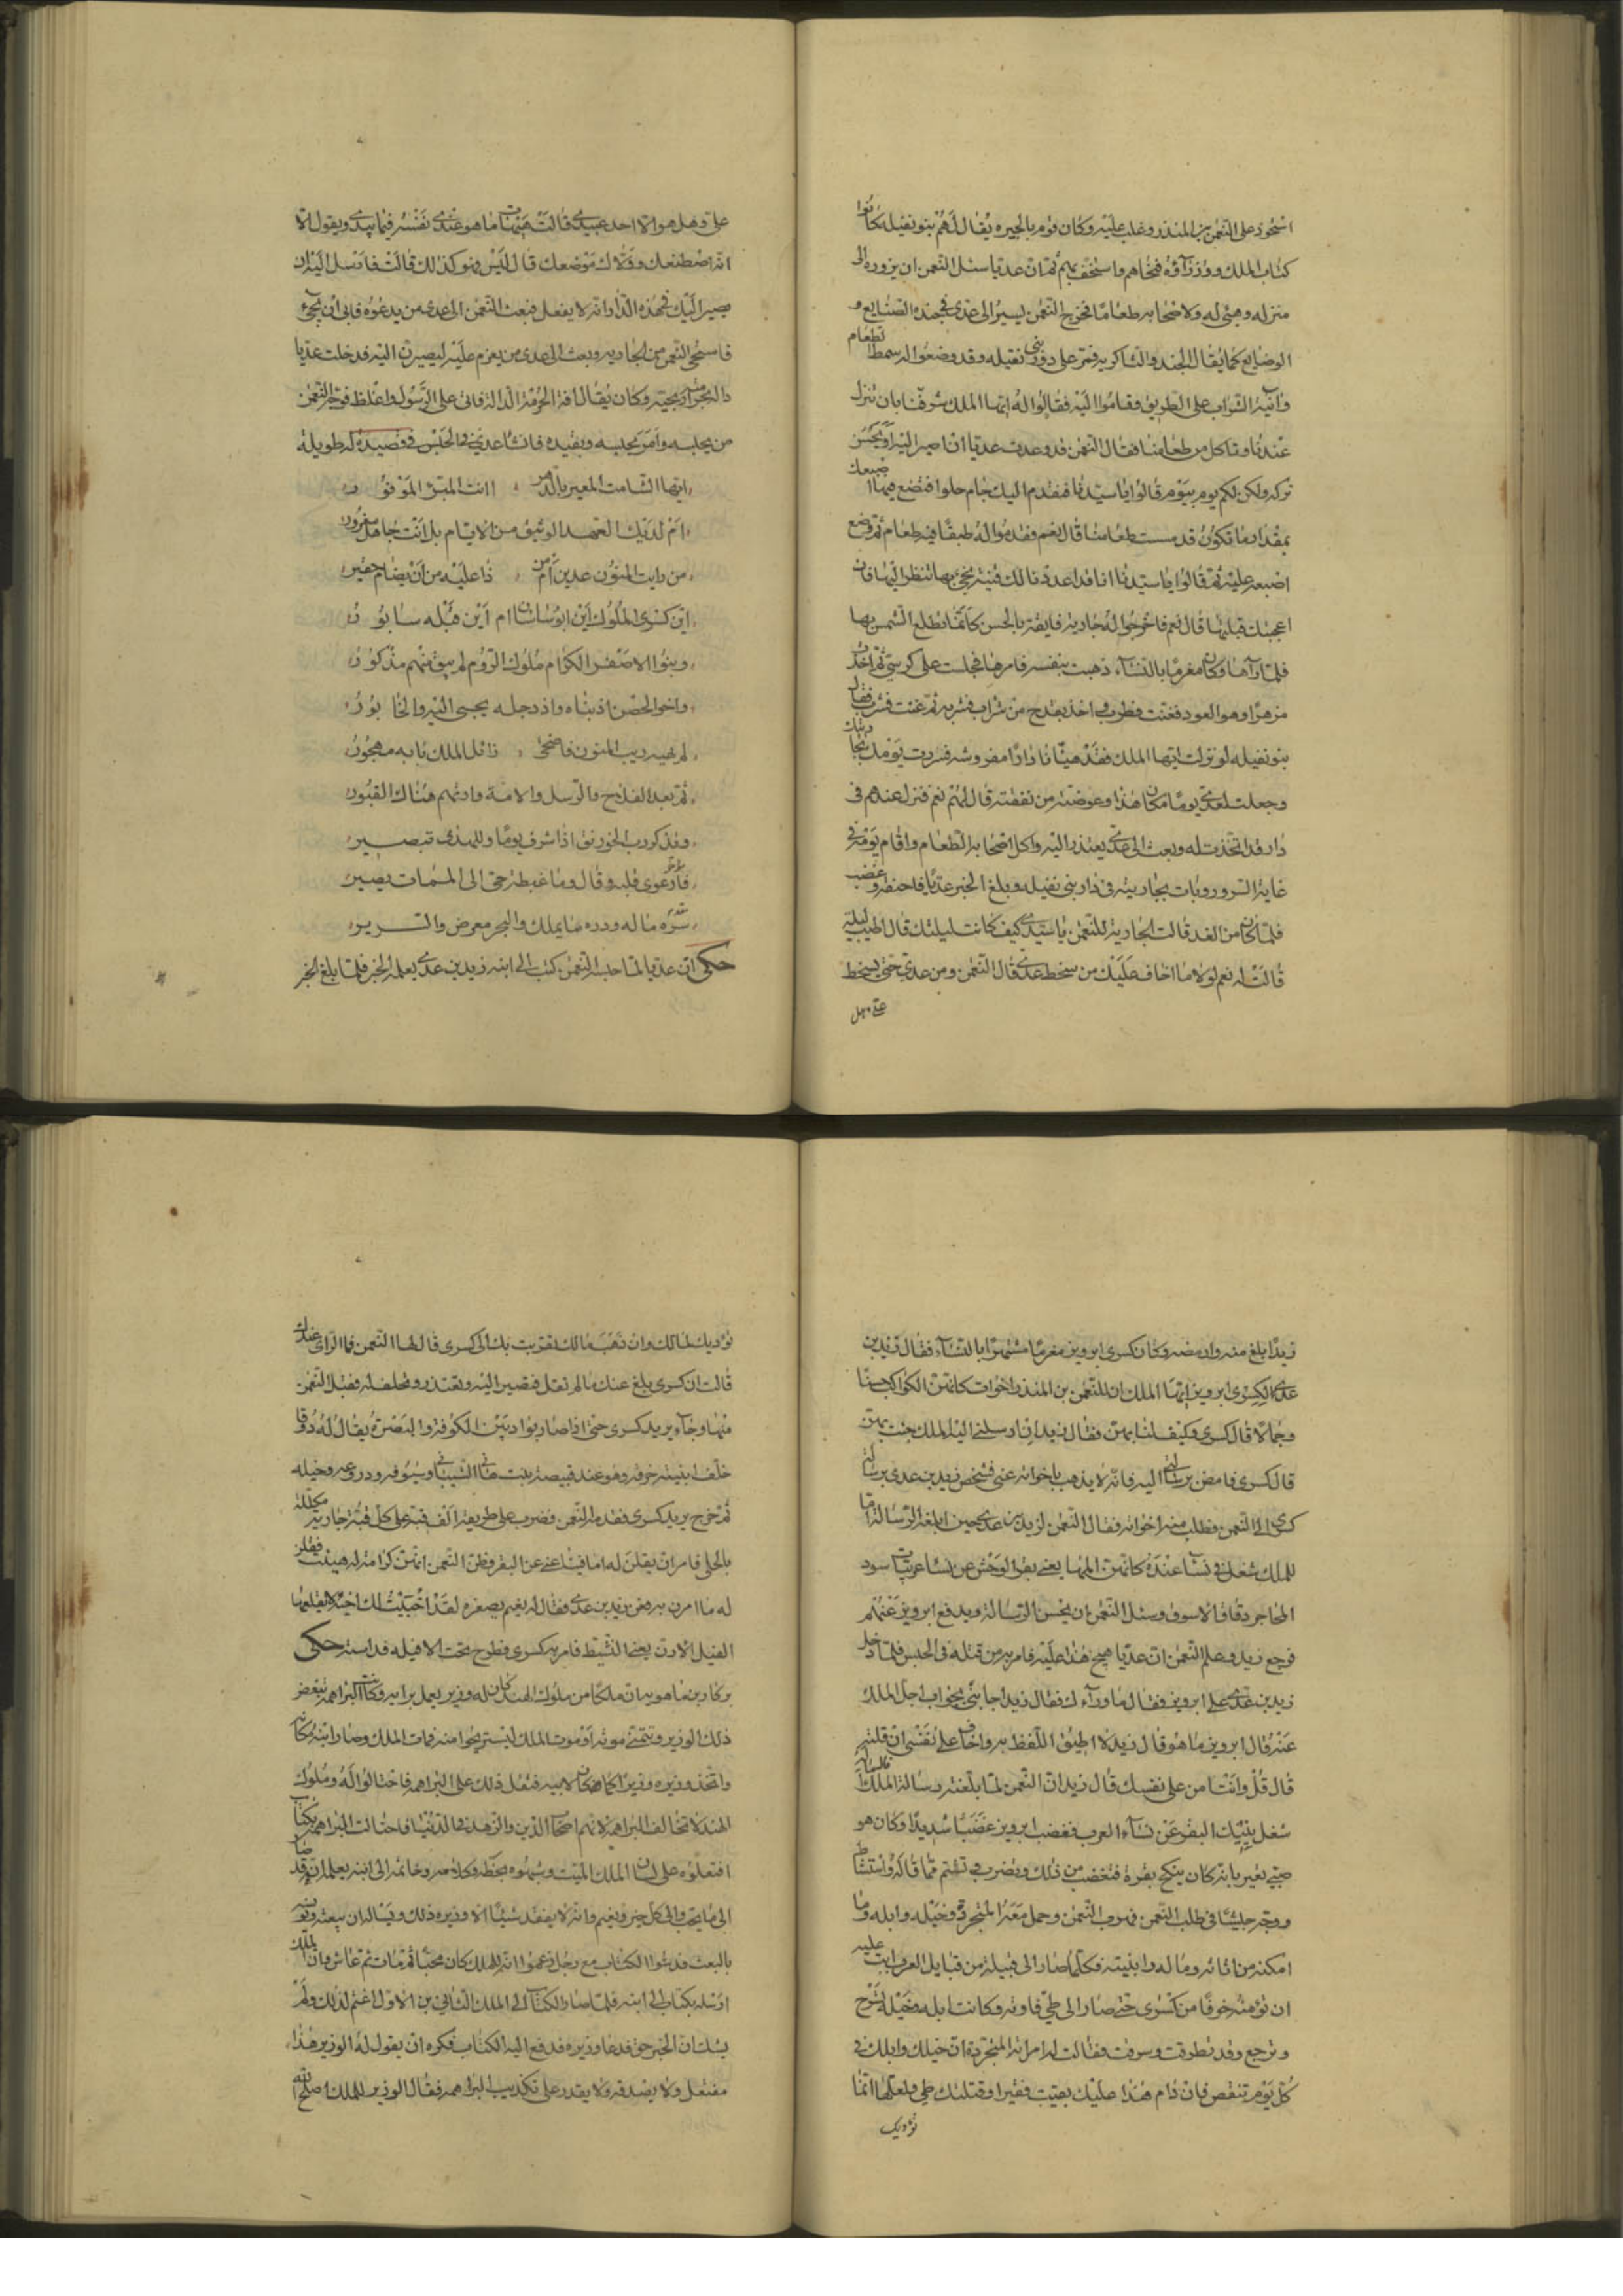 استحوذ على النعمن بن المنذر وغلب عليه وكان قوم بالحيره يقال لهم بنو نفيله كانوا
كتاب الملك ووزرآؤه فنحاهم واستخف بهم ثم ان عديا سئل النعمن ان يزوره الى
منزله وهيئ له ولاصحابه طعاما فخرج النعمن ليسير الى عدي في جنده الصنايع و
الوضايع كما يقال الجند والشاكريه فمر على دور بني نفيله وقد وضعوا له سمطا لطعام
وآنية الشراب على الطريق وقاموا اليه فقالوا له ايها الملك شرفنا بان تنزل
عندنا وتاكل من طعامنا فقال النعمن قد وعدت عديا ان اصير اليه
تركه ولكن لكم يوم بيوم قالوا يا سيدنا فنقدم اليك جام حلوا فتضع فيها اصبعك
بمقدار ما تكون قد مسست طعامنا قال نعم فقدموا له طبقا فيه طعام ثم وضع
اصبعه عليه ثم قالوا يا سيدنا انا قد اعددنا لك قنية نجئ بها تنظر اليها فان
اعجبتك قبلتها قال نعم فاخرجوا له جارية فايقة بالحسن كانما تطلع الشمس بها
فلما رآها وكان مغرما بالنسآء ذهبت بنفسه فامرها فجلست على كرسي ثم اخذت
مزهرا وهو العود فغنت فطرب فاخذ بقدح من شراب فشربه ثم غنت فشرب فقال
بنو نفيله لو نزلت ايها الملك فقد هيئنا دارا مفروشه فسررت يومك
وجعلت لعدي يوما مكان هذا وعوضته من نفقته قال لهم نعم فنزل عندهم في
دار قد اتخذت له وبعث الى عدي يعتذر اليه واكل اصحابه الطعام واقام يومه في
غاية السرور وبات بجاريته في دار بني نفيله وبلغ الخبر عديا فاحفظه وغضب
فلما كان من الغد قالت الجارية للنعمن يا سيدي كيف كانت ليلتك قال اطيب ليلة
قالت له نعم لولا ما اخاف عليك من سخط عدي قال النعمن ومن عدي حتى يسخط
علي وهل
علي وهل هو الا احد عبيدي قالت هيهات ما هو عندي نفسه فيما يبدي ويقول الا
انه اصطنعك وولاك موضعك قال ليس هو كذلك قالت فارسل اليه ان
يصير اليك في هذه الدار انه لا يفعل فبعث النعمن الى عدي من يدعوه فابى ان يجئ
فاستحى النعمن من الجاريه وبعث الى عدي من يعزم عليه ليصيرن اليه فدخلت عديا
دالته وكان يقال افة الحرمة الدالة فابى على الرسول واغلظ فوجه النعمن
من يجلبه وامر بحبسه وبقيده فانشا عدي في الحبس في قصيدة له طويلة
ايها الشامت المعير بالدهر أانت المبرؤ الموفور
ام لديك العهد الوثيق من الايام بل انت جاهل مغرور
من رايت المنون عدين ام من ذا عليه من ان يضام خفير
اين كسرى الملوك اين ابو ساسان ام اين قبله سابور
وبنوا الاصفر الكرام ملوك الروم لم يبق منهم مذكور
واخو الحصن اذ بناه واذ دجله يجبى اليه والخابور
لم يهبه ريب المنون فاضحى زائل الملك بابه مهجور
ثم بعد الفلاح والرسل والامة وارتهم هناك القبور
وتذكر رب الخورنق اذ اشرف يوما وللهدى تبصير
فارعوى قلبه وقال وما غبطة حي الى الممات يصير
سره ماله وما يملك والبحر معرض والسدير
حكي ان عديا لما حبسه النعمن كتب الى ابنه زيد بن عدي يعلمه الخبر فلما بلغ الخبر
زيدا بلغ منه وارمضه وكان كسرى ابرويز مغرما مشتهرا بالنسآء فقال زيد بن
عدي لكسرى ابرويز ايها الملك ان للنعمن بن المنذر اخوات كانهن الكواكب حسنا
وجمالا قال كسرى وكيف لنا بهن فقال زيد ان ارسلني اليه الملك جئت بهن
قال كسرى فامض برسالتي اليه فانه لا يذهب باخواته عني فشخص زيد بن عدي برسالة
كسرى الى النعمن فطلب منه اخواته فقال النعمن لزيد بن عدي حين ابلغه الرسالة اما
للملك شغل في نسآء عنده كانهن المها يعني بقر الوحش عن نسآء عربيات سود
المحاجر دقاق الاسوق وسئل النعمن ان يحسن الرسالة ويدفع ابرويز عنهم
فرجع زيد وعلم النعمن ان عديا هيج هذا عليه فامر به من قتله في الحبس فلما دخل
زيد بن عدي على ابرويز فقال ما ورآءك فقال زيد اجابني بجواب اجل الملك
عنه قال ابرويز ما هو قال زيد لا اطيق اللفظ به واخاف على نفسي ان قلته
قال قل وانت امن على نفسك قال زيد ان النعمن لما بلغته رسالة الملك قال
شغل بنيك البقر عن نسآء العرب فغضب ابرويز غضبا شديدا وكان هو
صبي يعير بانه كان ينكح بقرة فتغضب من ذلك ويضرب في تشتم مما قاله واستشاط
ووجه جيشا في طلب النعمن فهرب النعمن وحمل معه المتجردة وخيله وابله وما
امكنه من اثاثه وماله وابنيته فكلما صار الى قبيلة من قبايل العرب ابت عليه
ان تؤمنه خوفا من كسرى حتى صار الى طي فاوته وكانت ابله وخيله تسرح
وترجع وقد تطرقت وسرقت فقالت له امراته المتجردة ان خيلك وابلك في
كل يوم تنقص فان دام هذا عليك بقيت فقيرا وقتلتك طي ولعلها انما
نؤديك
نؤديك لمالك وان ذهب مالك تقربت بك الى كسرى قال لها النعمن فما الراى عندك
قالت ان كسرى بلغ عنك ما لم تقل فتصير اليه وتعتذر وتحلف له فقبل النعمن
منها وجآء يريد كسرى حتى اذا صار بواد بين الكوفة والبصرة يقال له ذوقا
خلف ابنيته خوفه وهو عند قبيصة بنت هانئ الشيباني وسيوفه ودروعه وخيله
ثم خرج يريد كسرى فقدمه النعمن فضرب على طريقه الف قبة على كل قبة جارية مكللة
بالحلي فامر ان يقلن له اما فينا غنى عن البقر فظن النعمن انهن كرامة له هيئت فقلن
له ما امرن به فعض زيد بن عدي فقال له نعيم بصغره لقد اخبيت لك اخية لا يقلعها
الفيل الارن يعني النشيط فامر به كسرى فطرح تحت الافيله فداسته حكي
بركا دين ماهوبيان ملكا من ملوك الهند كان له وزير يعمل برايه وكانت البراهمه تبغض
ذلك الوزير وتتمنى موته او موت الملك ليستريحوا منه فمات الملك وصار ابنه مكانه
واتخذ وزيره وزيرا كما كان لابيه فثقل ذلك على البراهمه فاحتالوا له وملوك
الهند لا تخالف البراهمه لانهم اصحاب الدين والزهد في الدنيا فاحتالت البراهمه بكتاب
افتعلوه على لسان الملك الميت وشبهوه بخطه وكلامه وخاتمه الى ابنه يعلمه انه قد صار
الى ما يحب والى كل خير ونعيم وانه لا يفقد شيئا الا وزيره ذلك ويساله ان يبعث
بالبعث فدسوا الكتاب مع رجل زعموا انه للملك كان محبا ثم مات ثم عاش وان الملك
ارسله بكتاب الى ابنه فلما صار الكتاب الى الملك الثاني بن الاول اغتم لذلك ولم
يشك ان الخبر حق فدعا وزيره فدفع اليه الكتاب فكره ان يقول له الوزير هذا
مفتعل ولا يصدقه ولا يقدر على تكذيب البراهمه فقال الوزير للملك اصلح الله